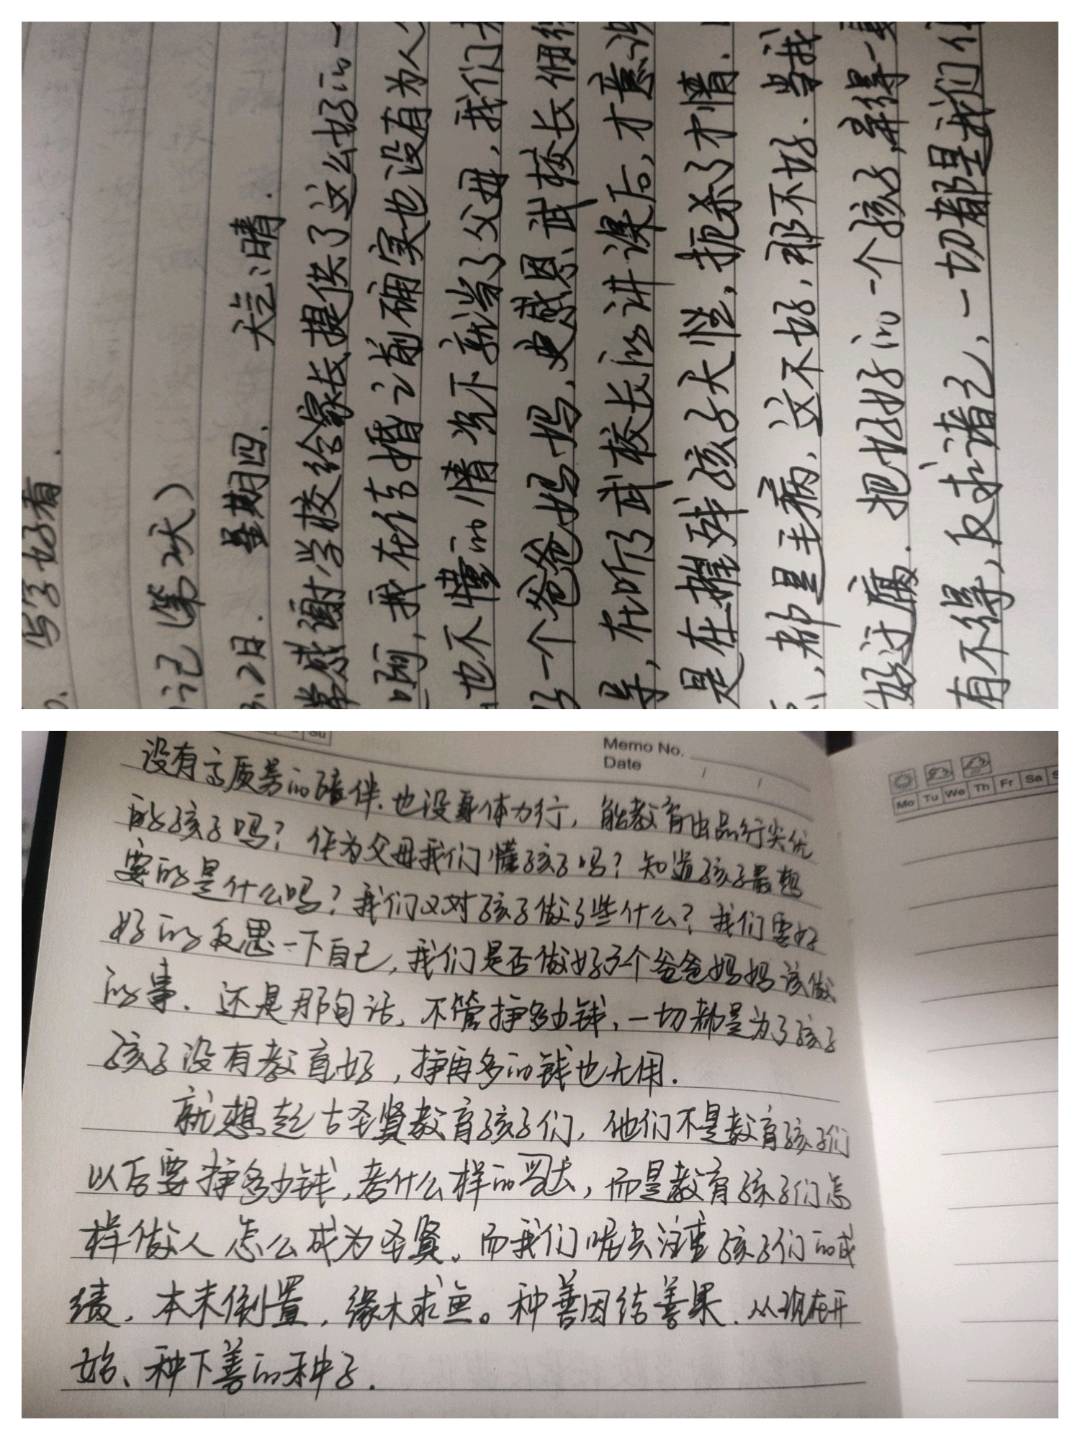 写字好看.
记(第2天)
2日. 星期四. 天气:晴.
常感谢学校给家长提供了这么好的一
啊,我在结婚之前确实也没有为人
也不懂的情况下就当了父母,我们
一个爸爸妈妈,更感恩武校长
导,在听了武校长的讲课后,才意识
是在摧残孩子天性,扼杀了才情.
都是毛病,这不好,那不好.当我
过腐.把好好的一个孩子,弄得一
有不得,反求诸己,一切都是我们
Memo No.
Date
Mo Tu We Th Fr Sa
没有高质量的陪伴.也没身体力行,能教育出品行尖优
的孩子吗?作为父母我们懂孩子吗?知道孩子最想
要的是什么吗?我们又对孩子做了些什么?我们要好
好的反思一下自己,我们是否做好了个爸爸妈妈该做
的事.还是那句话,不管挣多少钱,一切都是为了孩子
孩子没有教育好,挣再多的钱也无用.
就想起古圣贤教育孩子们,他们不是教育孩子们
以后要挣多少钱,考什么样的,而是教育孩子们怎
样做人怎么成为圣贤.而我们呢关注重孩子们的成
绩.本末倒置,缘木求鱼。种善因结善果.从现在开
始、种下善的种子.